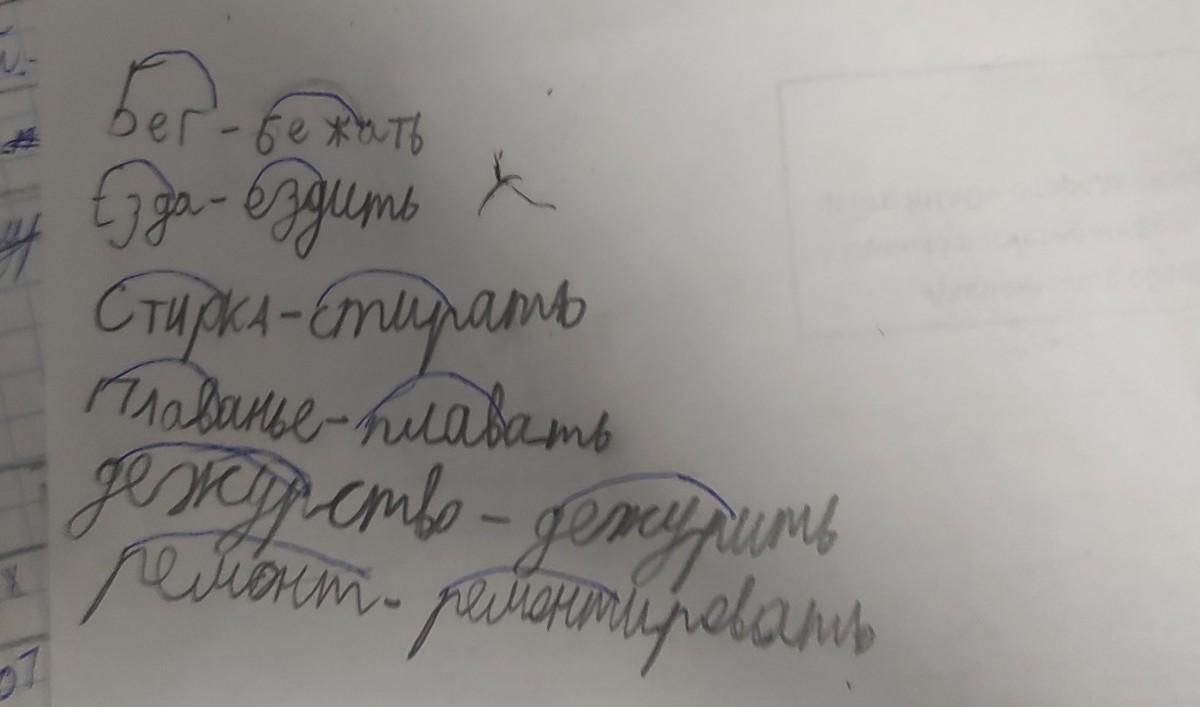 Бег - бежать
Езда - ездить
Стирка - стирать
Плаванье - плавать
дежурство - дежурить
ремонт - ремонтировать